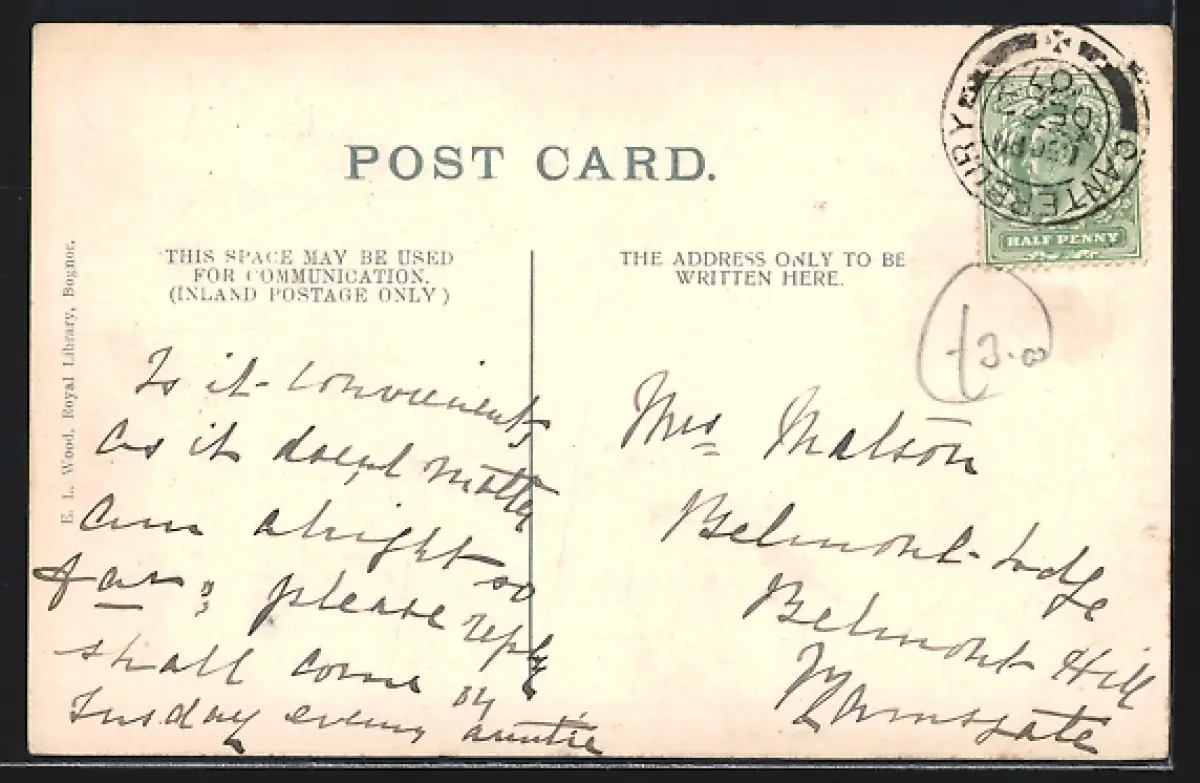 POST CARD.
THIS SPACE MAY BE USED
FOR COMMUNICATION.
(INLAND POSTAGE ONLY)
THE ADDRESS ONLY TO BE
WRITTEN HERE.
E. L. Wood, Royal Library, Bognor.
CANTERBURY
DE
07
HALF PENNY
3.00
Is it convenient
as it doesnt matter
am alright so
far; please reply
shall come by
Tusday evening auntie
Mrs Matson
Belmont Lodge
Belmont Hill
Ramsgate